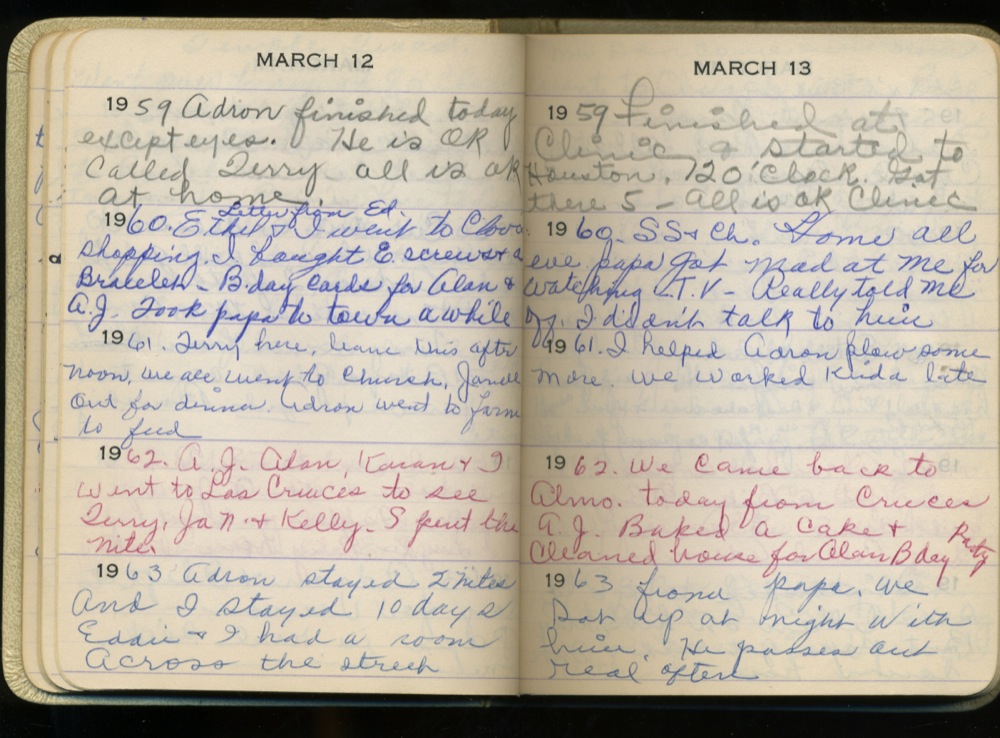 MARCH 12
1959 Adron finished today
except eyes. He is OK
Called Terry all is ok
at home.
Letter from Ed.
1960. Ethel & I went to Clovis
shopping. I bought E. screws & a
Bracelet - B.day Cards for Alan &
A.J. Took papa to town a while
1961. Terry here, leave this after
noon, we all went to Church,
Out for dinner. Adron went to farm
to feed
1962. A.J. Alan, Karan & I
went to Las Cruces to see
Terry, Jan. & Kelly. Spent the
nite.
1963 Adron stayed 2 nites
And I stayed 10 days
Eddie & I had a room
Across the street
MARCH 13
1959 Finished at
Clinic & started to
Houston, 120'Clock. Got
there 5 - all is OK Clinic
1960. SS & Ch. Home all
eve papa got mad at me for
watching T.V - Really told me
I didn't talk to him
1961. I helped Adron plow some
more. we worked kinda late
1962. We came back to
Almo. today from Cruces
A.J. Baked a Cake &
Cleaned house for Alan Bday Party
1963 from papa. we
Sat up at night with
him. He passes out
real often